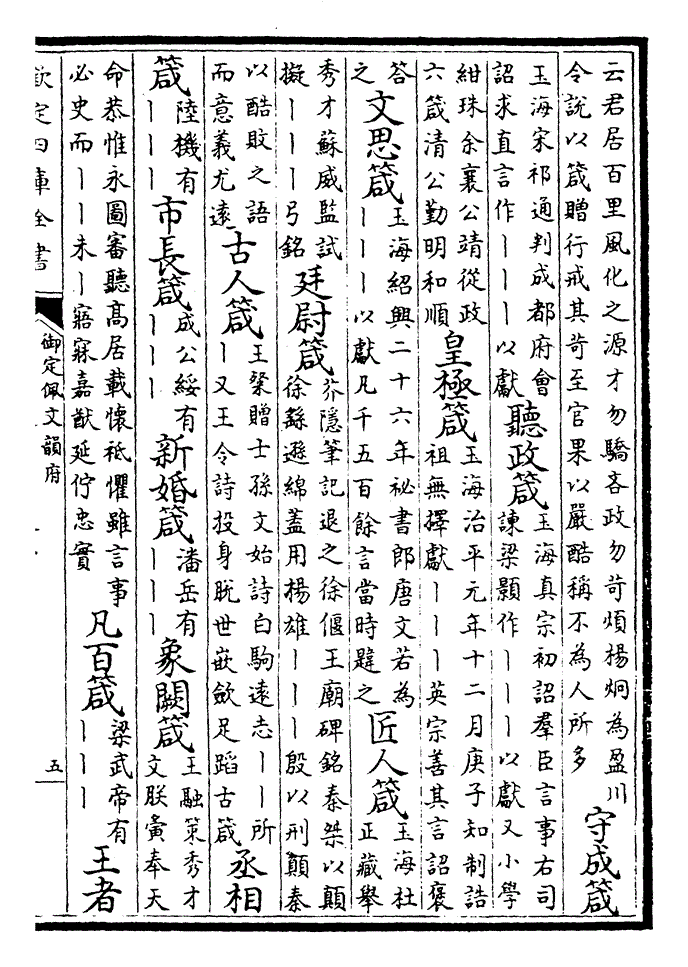 云君居百里風化之源才勿驕吝政勿苛煩揚炯為盈川
令説以箴贈行戒其苛至官果以嚴酷稱不為人所多
守成箴
玉海宋祁通判成都府會
詔求直言作丨丨丨以獻
聽政箴
玉海真宗初詔羣臣言事右司
諫梁顥作丨丨丨以獻又小學
紺珠余襄公靖從政
六箴清公勤明和順
皇極箴
玉海治平元年十二月庚子知制誥
祖無擇獻丨丨丨英宗善其言詔褒
答
之
文思箴
玉海紹興二十六年祕書郎唐文若為
丨丨丨以獻凡千五百餘言當時韙之
匠人箴
玉海杜
正藏舉
秀才蘇威監試
擬丨丨丨弓銘
廷尉箴
芥隱筆記退之徐偃王廟碑銘秦桀以顛
徐繇遜綿蓋用揚雄丨丨丨殷以刑顛秦
以酷敗之語
而意義尤遠
古人箴
王粲贈士孫文始詩白駒遠志丨丨所
丨又王令詩投身脫世嵌歛足蹈古箴
丞相
箴
陸機有
丨丨丨
市長箴
成公綏有
丨丨丨
新婚箴
潘岳有
丨丨丨
象闕箴
王融策秀才
文朕夤奉天
命恭惟永圖審聽髙居載懷祗懼雖言事
必史而丨丨未丨寤寐嘉猷延佇忠實
凡百箴
梁武帝有
丨丨丨
王者
欽定四庫全書
御定佩文韻府
五